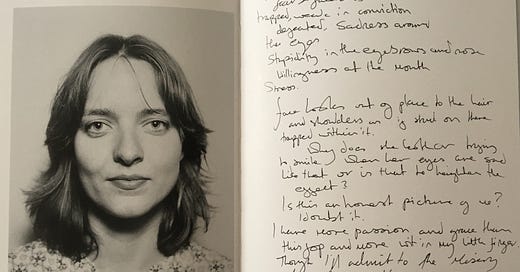 trapped, weak in conviction
defeated, Sadness around
the eyes
Stupidity in the eyebrows and nose
Willingness at the mouth
Stress.
face looks out of place to the hair
and shoulders as if stuck on there
trapped within it.
Why does she bother trying
to smile when her eyes are sad
like that or is that to heighten the
effect?
Is this an honest picture of me?
I doubt it.
I have more passion, and grace than
this fop and more wit in my little finger.
Though I'll admit to the